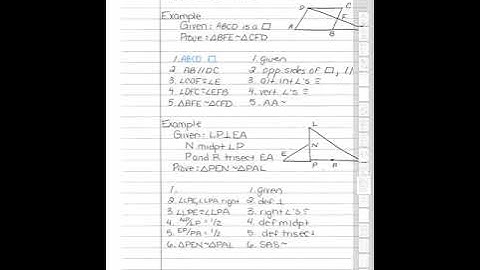 Example
Given: ABCD is a □
Prove: △BFE ~ △CFD
D C
F
A B
1. ABCD □ 1. given
2. AB//DC 2. opp. sides of □, //
3. ∠CDF ≅ ∠E 3. alt. int ∠'s ≅
4. ∠DFC ≅ ∠EFB 4. vert. ∠'s ≅
5. △BFE ~ △CFD 5. AA~
Example
Given: LP ⊥ EA
N midpt LP
P and R trisect EA
Prove: △PEN ~ △PAL
L
N
E
P R
1. 1. given
2. ∠LPE, ∠LPA right 2. def ⊥
3. ∠LPE ≅ ∠LPA 3. right ∠'s ≅
4. NP/LP = 1/2 4. def midpt
5. EP/PA = 1/2 5. def trisect
6. △PEN ~ △PAL 6. SAS~